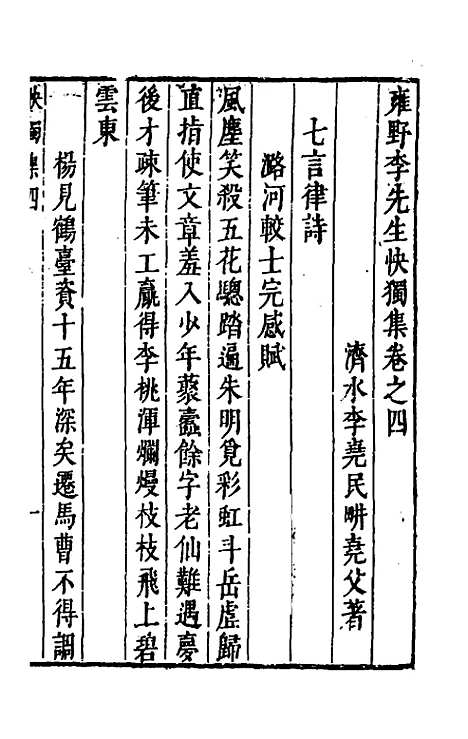 雍野李先生快獨集卷之四
濟水李堯民畊堯父著
七言律詩
潞河較士完感賦
風塵笑殺五花驄踏遍朱明覓彩虹斗岳虛歸
直指使文章羞入少年藂蠹餘字老仙難遇夢
後才疎筆未工贏得李桃渾爛熳枝枝飛上碧
雲東
楊見鶴臺資十五年深矣遷馬曹不得調
快獨集四
一